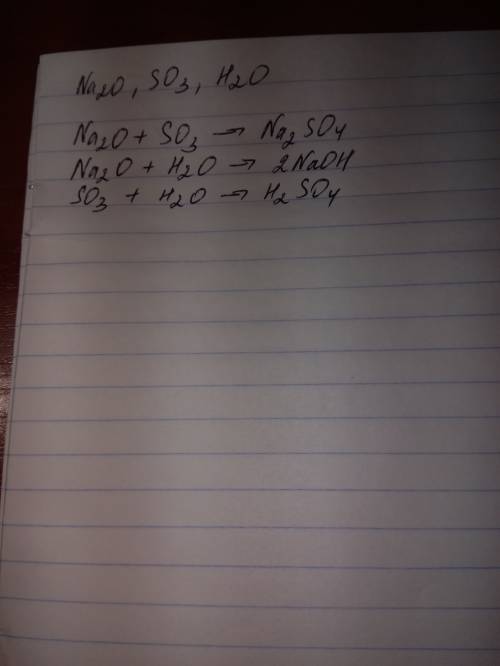 Na2O, SO3, H2O
Na2O + SO3 → Na2SO4
Na2O + H2O → 2NaOH
SO3 + H2O → H2SO4